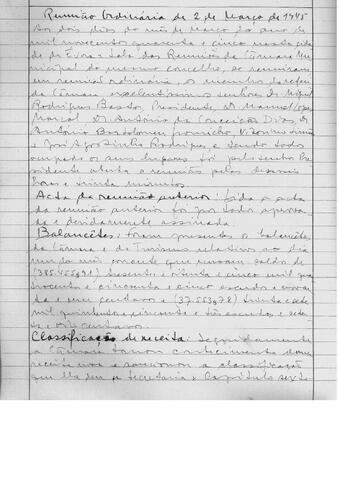 Reunião Ordinária de 2 de Março de 1945
Aos dois dias do mês de Março do ano de
mil novecentos quarenta e cinco nesta cida
de de Évora e Sala das Reuniões da Câmara Mu
nicipal do mesmo concelho, se reuniram
em reunião ordinária os membros da refe
da Câmara excelentíssimos senhores Dr. Miguel
Rodrigues Bastos, Presidente, Dr. Manuel Lopes
Marçal, Dr. António da Conceição Dias, Dr.
António Bartolomeu
e José Agostinho Rodrigues e sendo todos
ocupado os seus lugares foi pelo senhor Pre
sidente aberta a reunião pelas dezasseis
horas e trinta minutos.
Acta da reunião anterior: Lida a acta
da reunião anterior foi por todos aprova
da e devidamente assinada.
Balancêtes: Foram presentes o balancête
da Câmara e de Turismo relativos ao dia
um do mês corrente que acusam saldo de
trezentos e oitenta e cinco mil qua
trocentos e cincoenta e cinco escudos e noven
ta e um centavos e (37.553$78) trinta e sete
mil quinhentos e cincoenta e três escudos e seten
ta e oito centavos.
Classificação de receita: Seguidamente
a Câmara tomou conhecimento duma
receita nova e sancionou a classificação
que lhe deu a Secretaria e Capítulo sexto